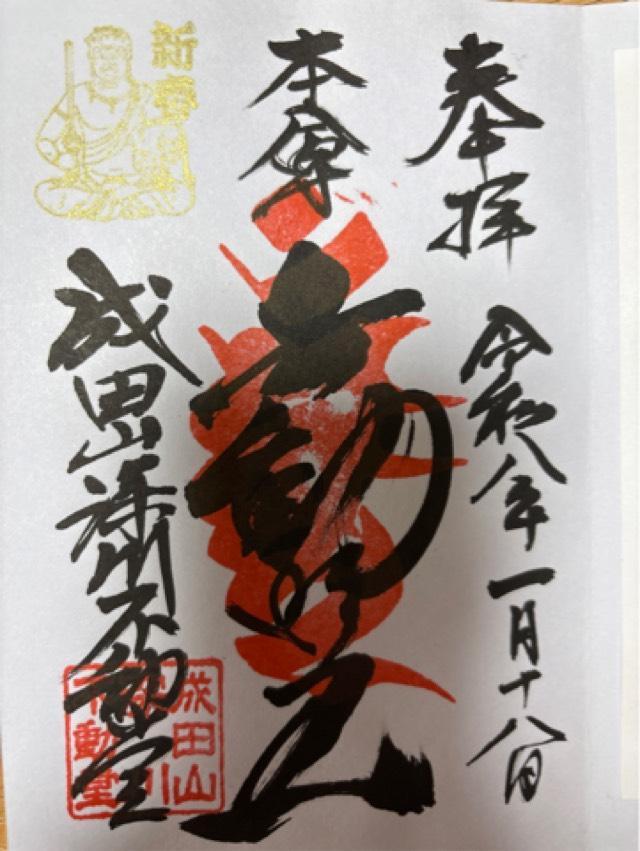 奉拝
令和八年一月十八日
本尊
不動明王
新春
成田山深川不動堂
成田山
深川
不動堂